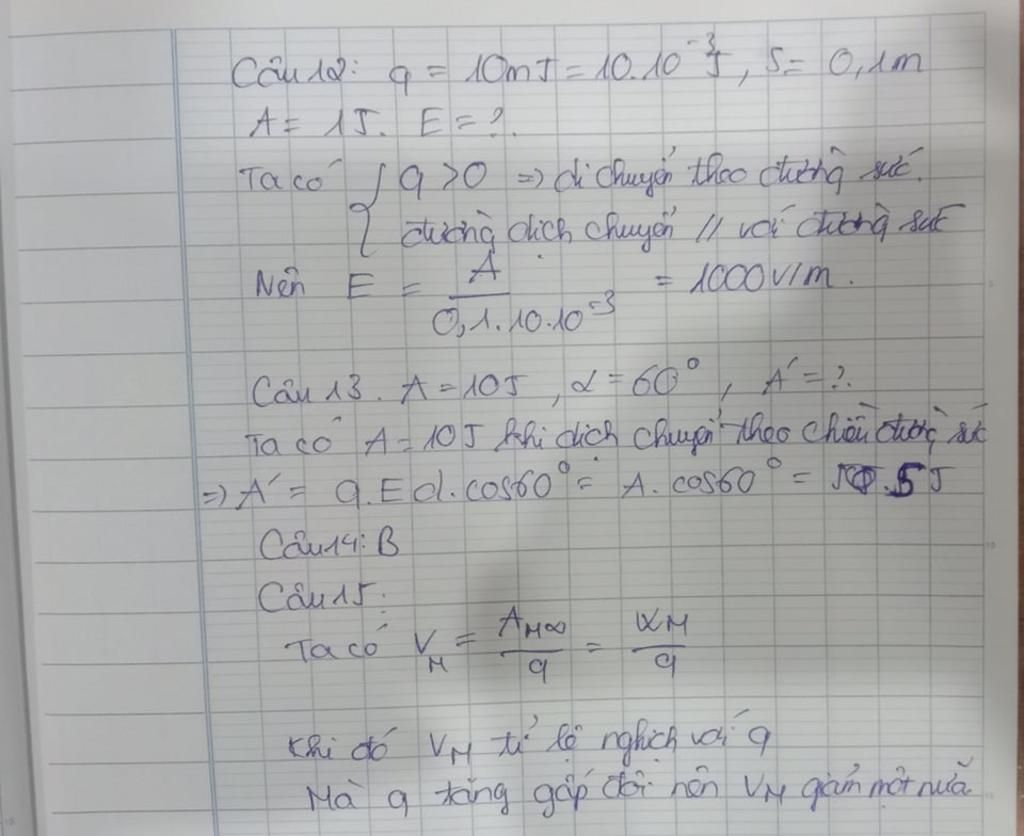 Câu 12: q = 10mJ = 10.10⁻³J, S = 0,1m
A = 1J. E = ?.
Ta có { q > 0 => di chuyển theo đường sức.
đường dịch chuyển // với đường sức
Nên E = A / 0,1.10.10⁻³ = 1000V/m.
Câu 13. A = 10J, α = 60°, A' = ?.
Ta có A = 10J khi dịch chuyển theo chiều đường sức
=> A' = q.Ed.cos60° = A.cos60° = 5J
Câu 14: B
Câu 15:
Ta có V_M = A_M∞ / q = W_M / q
Khi đó V_M tỉ lệ nghịch với q
Mà q tăng gấp đôi nên V_M giảm một nửa